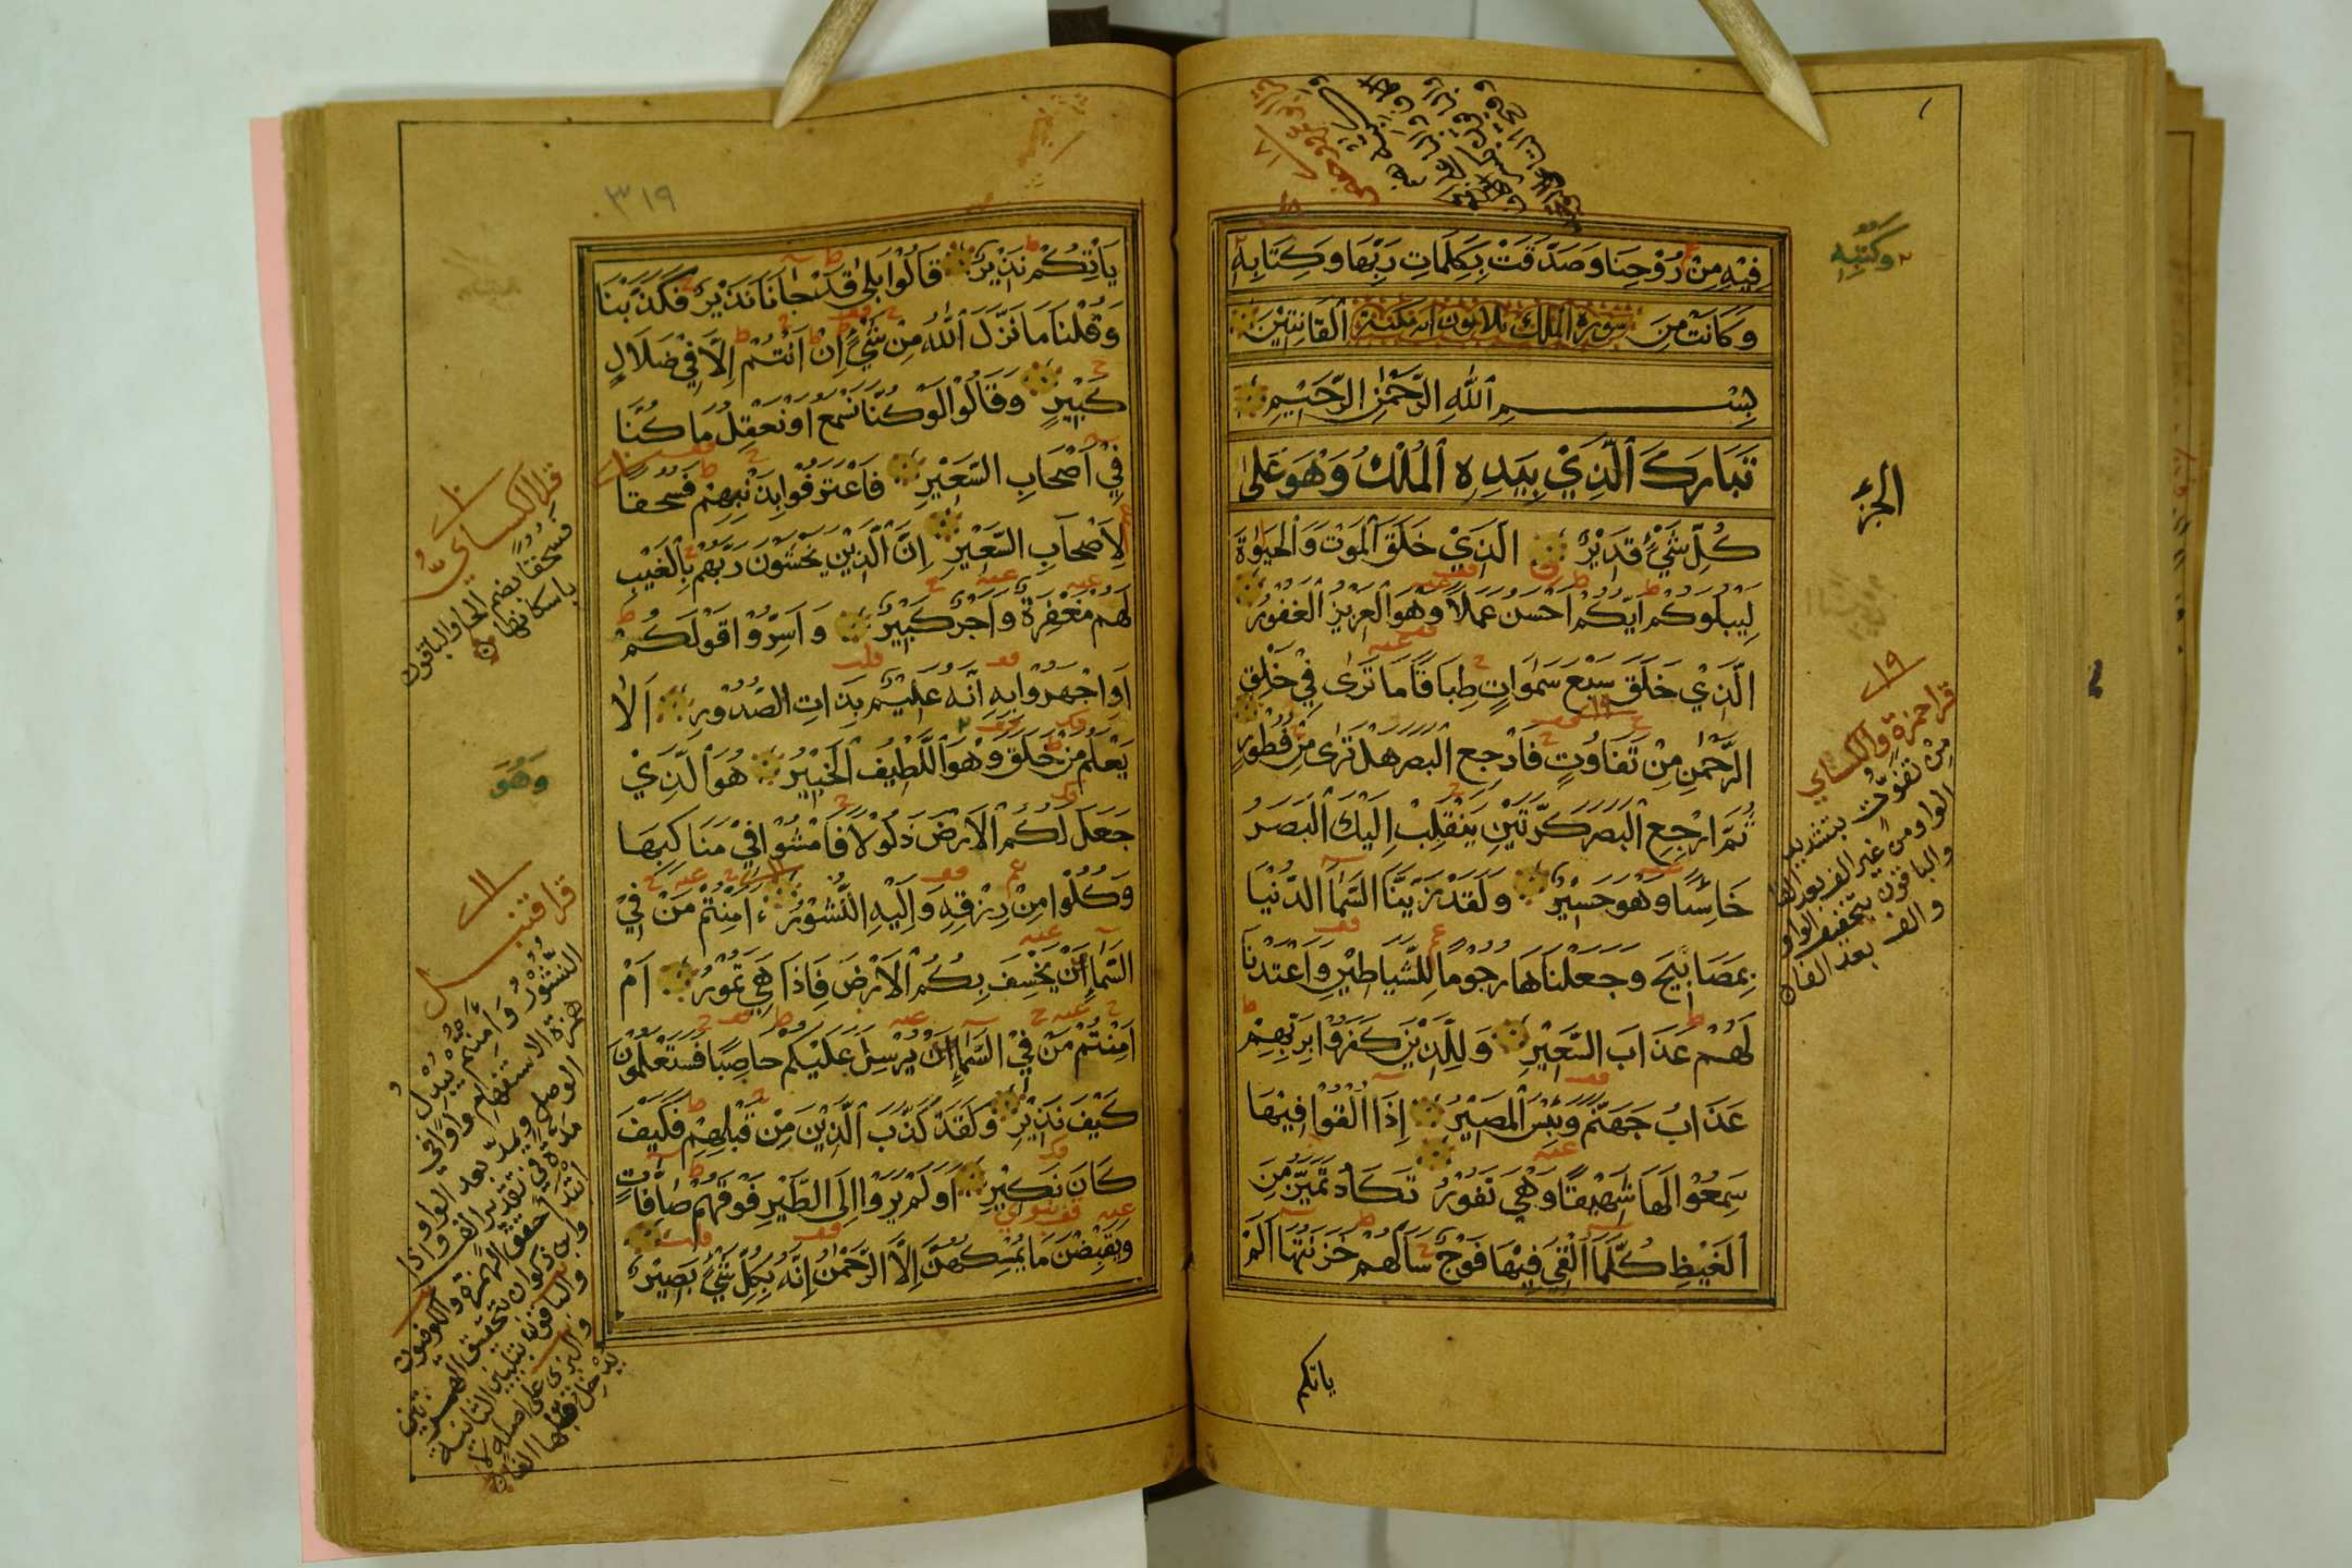 فِيْهِ مِنْ رُوْحِنَا وَصَدَّقَتْ بِكَلِمَاتِ رَبِّهَا وَكِتَابِهِ
وَكَانَتْ مِنَ سورة الملك ثلاثون آية مكية ٱلْقَانِتِيْنَ
بِسْمِ ٱللَّهِ الرَّحْمٰنِ الرَّحِيْمِ
تَبَارَكَ ٱلَّذِيْ بِيَدِهِ ٱلْمُلْكُ وَهُوَ عَلٰى
كُلِّ شَيْءٍ قَدِيْرٌ الَّذِيْ خَلَقَ ٱلْمَوْتَ وَٱلْحَيٰوةَ
لِيَبْلُوَكُمْ اَيُّكُمْ اَحْسَنُ عَمَلًا وَهُوَ ٱلْعَزِيْزُ ٱلْغَفُوْرُ
الَّذِيْ خَلَقَ سَبْعَ سَمٰوَاتٍ طِبَاقًا مَا تَرٰى فِيْ خَلْقِ
الرَّحْمٰنِ مِنْ تَفَاوُتٍ فَارْجِعِ ٱلْبَصَرَ هَلْ تَرٰى مِنْ فُطُوْرٍ
ثُمَّ ارْجِعِ ٱلْبَصَرَ كَرَّتَيْنِ يَنْقَلِبْ اِلَيْكَ ٱلْبَصَرُ
خَاسِئًا وَهُوَ حَسِيْرٌ وَلَقَدْ زَيَّنَّا السَّمَآءَ الدُّنْيَا
بِمَصَابِيْحَ وَجَعَلْنَاهَا رُجُوْمًا لِلشَّيَاطِيْنِ وَاَعْتَدْنَا
لَهُمْ عَذَابَ السَّعِيْرِ وَلِلَّذِيْنَ كَفَرُوْا بِرَبِّهِمْ
عَذَابُ جَهَنَّمَ وَبِئْسَ ٱلْمَصِيْرُ اِذَا اُلْقُوْا فِيْهَا
سَمِعُوْا لَهَا شَهِيْقًا وَهِيَ تَفُوْرُ تَكَادُ تَمَيَّزُ مِنَ
ٱلْغَيْظِ كُلَّمَا اُلْقِيَ فِيْهَا فَوْجٌ سَاَلَهُمْ خَزَنَتُهَا اَلَمْ
ياتكم
وَكُتُبِهِ
الجزء
١٩
قرا حمزة والكسائي
مِنْ تَفَوُّتٍ بتشديد
الواو من غير الف بعد الفاء
والباقون بتخفيف الواو
والف بعد الفاء
٣١٩
يَاْتِكُمْ نَذِيْرٌ قَالُوْا بَلٰى قَدْ جَآءَنَا نَذِيْرٌ فَكَذَّبْنَا
وَقُلْنَا مَا نَزَّلَ ٱللَّهُ مِنْ شَيْءٍ اِنْ اَنْتُمْ اِلَّا فِيْ ضَلَالٍ
كَبِيْرٍ وَقَالُوْا لَوْ كُنَّا نَسْمَعُ اَوْ نَعْقِلُ مَا كُنَّا
فِيْ اَصْحَابِ السَّعِيْرِ فَاعْتَرَفُوْا بِذَنْبِهِمْ فَسُحْقًا
لِاَصْحَابِ السَّعِيْرِ اِنَّ الَّذِيْنَ يَخْشَوْنَ رَبَّهُمْ بِٱلْغَيْبِ
لَهُمْ مَغْفِرَةٌ وَاَجْرٌ كَبِيْرٌ وَاَسِرُّوْا قَوْلَكُمْ
اَوِ اجْهَرُوْا بِهِ اِنَّهُ عَلِيْمٌ بِذَاتِ الصُّدُوْرِ اَلَا
يَعْلَمُ مَنْ خَلَقَ وَهُوَ ٱللَّطِيْفُ ٱلْخَبِيْرُ هُوَ ٱلَّذِيْ
جَعَلَ لَكُمُ ٱلْاَرْضَ ذَلُوْلًا فَامْشُوْا فِيْ مَنَاكِبِهَا
وَكُلُوْا مِنْ رِزْقِهِ وَاِلَيْهِ النُّشُوْرُ ءَاَمِنْتُمْ مَنْ فِيْ
السَّمَآءِ اَنْ يَخْسِفَ بِكُمُ ٱلْاَرْضَ فَاِذَا هِيَ تَمُوْرُ اَمْ
اَمِنْتُمْ مَنْ فِيْ السَّمَآءِ اَنْ يُرْسِلَ عَلَيْكُمْ حَاصِبًا فَسَتَعْلَمُوْنَ
كَيْفَ نَذِيْرِ وَلَقَدْ كَذَّبَ ٱلَّذِيْنَ مِنْ قَبْلِهِمْ فَكَيْفَ
كَانَ نَكِيْرِ اَوَلَمْ يَرَوْا اِلَى الطَّيْرِ فَوْقَهُمْ صَآفَّاتٍ
وَيَقْبِضْنَ مَا يُمْسِكُهُنَّ اِلَّا الرَّحْمٰنُ اِنَّهُ بِكُلِّ شَيْءٍ بَصِيْرٌ
قرا الكسائي
فَسُحُقًا بضم الحا والباقون
باسكانها
وَهْوَ
قرا قنبل
النشور وامنتم يبدل
همزة الاستفهام واوا في
الوصل ويمد بعد الواو
مدة في تقدير الف